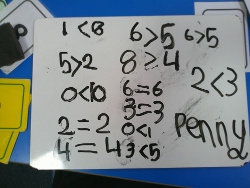 1 < 8
6 > 5
6 > 5
5 > 2
8 > 4
2 < 3
0 < 10
6 = 6
3 = 3
2 = 2
0 < 1
Penny
4 = 4
3 < 5